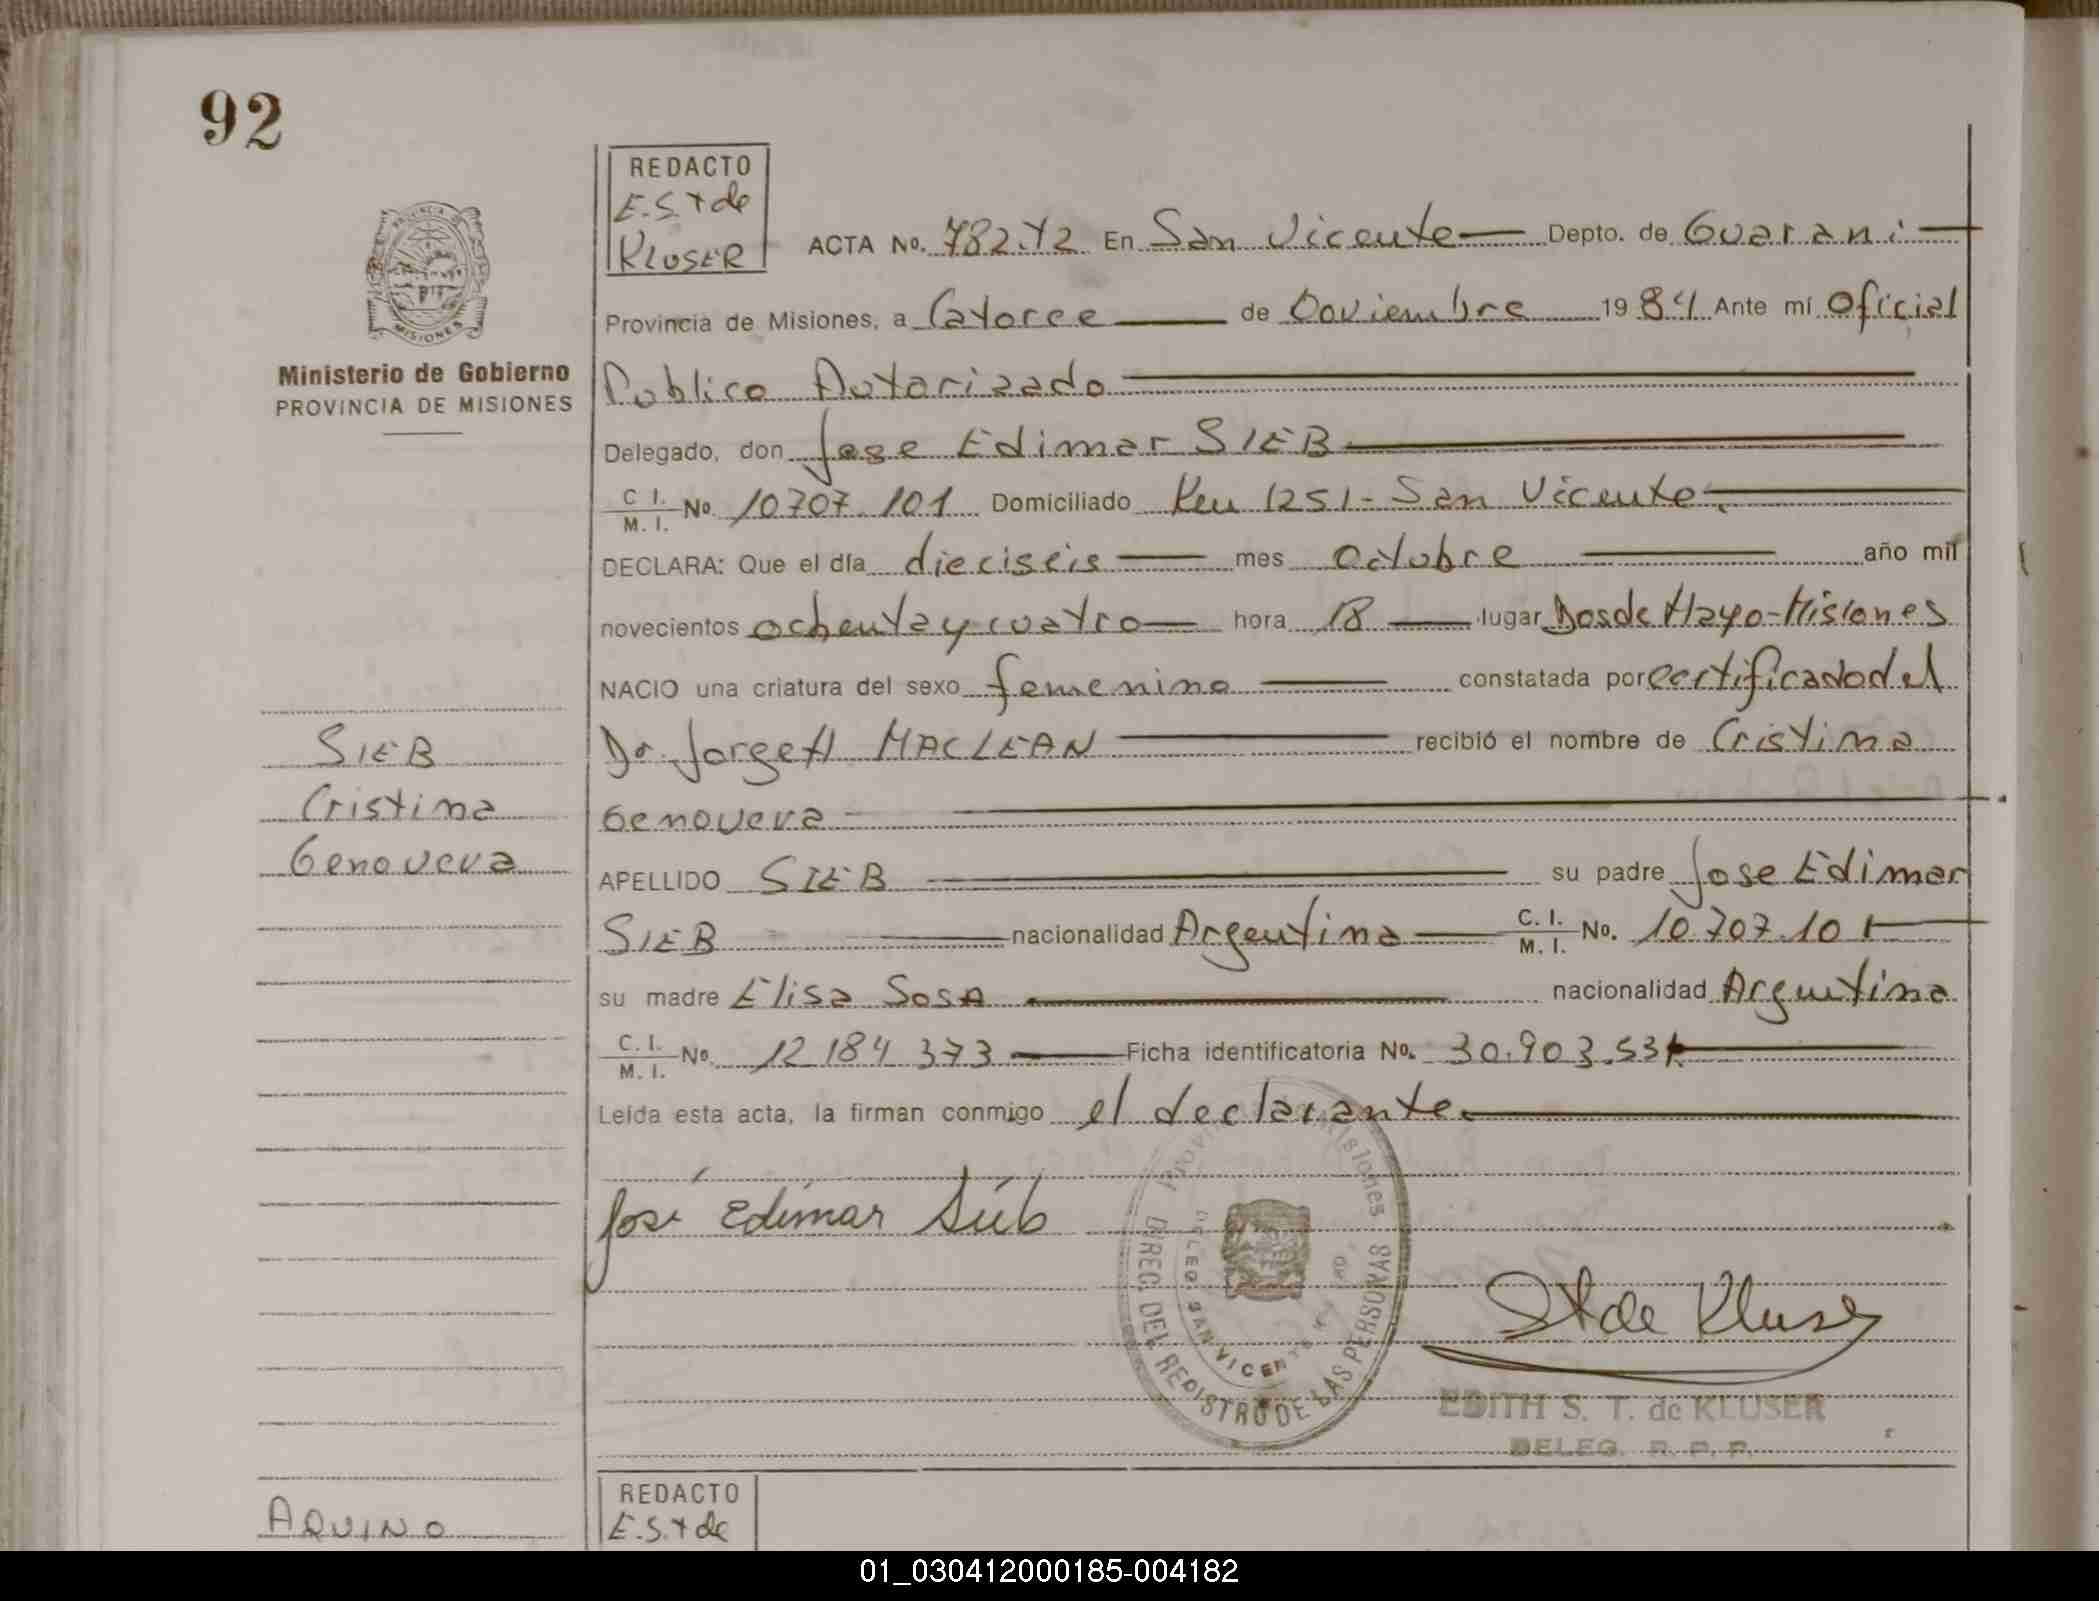 92
REDACTO
E.S.T de
KLUSER
ACTA No. 782.T2 En San Vicente Depto. de Guarani
Provincia de Misiones, a Catorce de Noviembre 1984 Ante mí Oficial
Publico Autorizado
PROVINCIA DE
MISIONES
Ministerio de Gobierno
PROVINCIA DE MISIONES
Delegado, don Jose Edimar SIEB
C I. M. I. No. 10707.101 Domiciliado Km 1251- San Vicente
DECLARA: Que el día dieciseis mes Octubre año mil
novecientos ochenta y cuatro hora 18 lugar Dosde Mayo-Misiones
NACIO una criatura del sexo femenino constatada por certificado del
Dr. Jorge H MACLEAN recibió el nombre de Cristina
Genoveva
SIEB
Cristina
Genoveva
APELLIDO SIEB su padre Jose Edimar
SIEB nacionalidad Argentina C. I. M. I. No. 10.707.101
su madre Elisa SosA nacionalidad Argentina
C. I. M. I. No. 12 184 373 Ficha identificatoria No. 30.903.531
Leída esta acta, la firman conmigo el declarante
José Edimar Sieb
Provincia Misiones
DIREC. DEL REGISTRO DE LAS PERSONAS
DELEG. SAN VICENTE
ST de Kluser
EDITH S. T. de KLUSER
DELEG. R. P. P.
AQUINO
REDACTO
E.S.T de
01_030412000185-004182